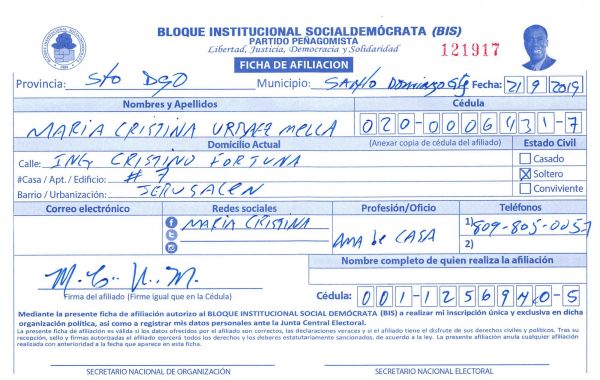 BLOQUE INSTITUCIONAL SOCIALDEMÓCRATA (BIS)
PARTIDO PEÑAGOMISTA
Libertad, Justicia, Democracia y Solidaridad
121917
FICHA DE AFILIACION
Provincia: Sto DGO Municipio: SANTO Domingo Fecha: 21 9 2019
Nombres y Apellidos Cédula
MARIA CRISTINA URBAEZ MELLA 020-0006431-7
Domicilio Actual (Anexar copia de cédula del afiliado) Estado Civil
Calle: ING CRISTINO FORTUNA Casado
#Casa / Apt. / Edificio: # 7 X Soltero
Barrio / Urbanización: JERUSALEN Conviviente
Correo electrónico Redes sociales Profesión/Oficio Teléfonos
MARIA CRISTINA AMA de CASA 1) 809-805-0057
2)
Nombre completo de quien realiza la afiliación
M. C. U. M.
Firma del afiliado (Firme igual que en la Cédula) Cédula: 001-1256940-5
Mediante la presente ficha de afiliación autorizo al BLOQUE INSTITUCIONAL SOCIAL DEMÓCRATA (BIS) a realizar mi inscripción única y exclusiva en dicha
organización política, así como a registrar mis datos personales ante la Junta Central Electoral.
La presente ficha de afiliación es válida si los datos ofrecidos por el afiliado son correctos, las declaraciones veraces y si el afiliado tiene el disfrute de sus derechos civiles y políticos. Tras su
recepción, sello y firmas autorizadas el afiliado ejercerá todos los derechos y los deberes estatutariamente sancionados, de acuerdo a la ley. La presente afiliación anula cualquier afiliación
realizada con anterioridad a la fecha que aparece en esta ficha.
SECRETARIO NACIONAL DE ORGANIZACIÓN SECRETARIO NACIONAL ELECTORAL